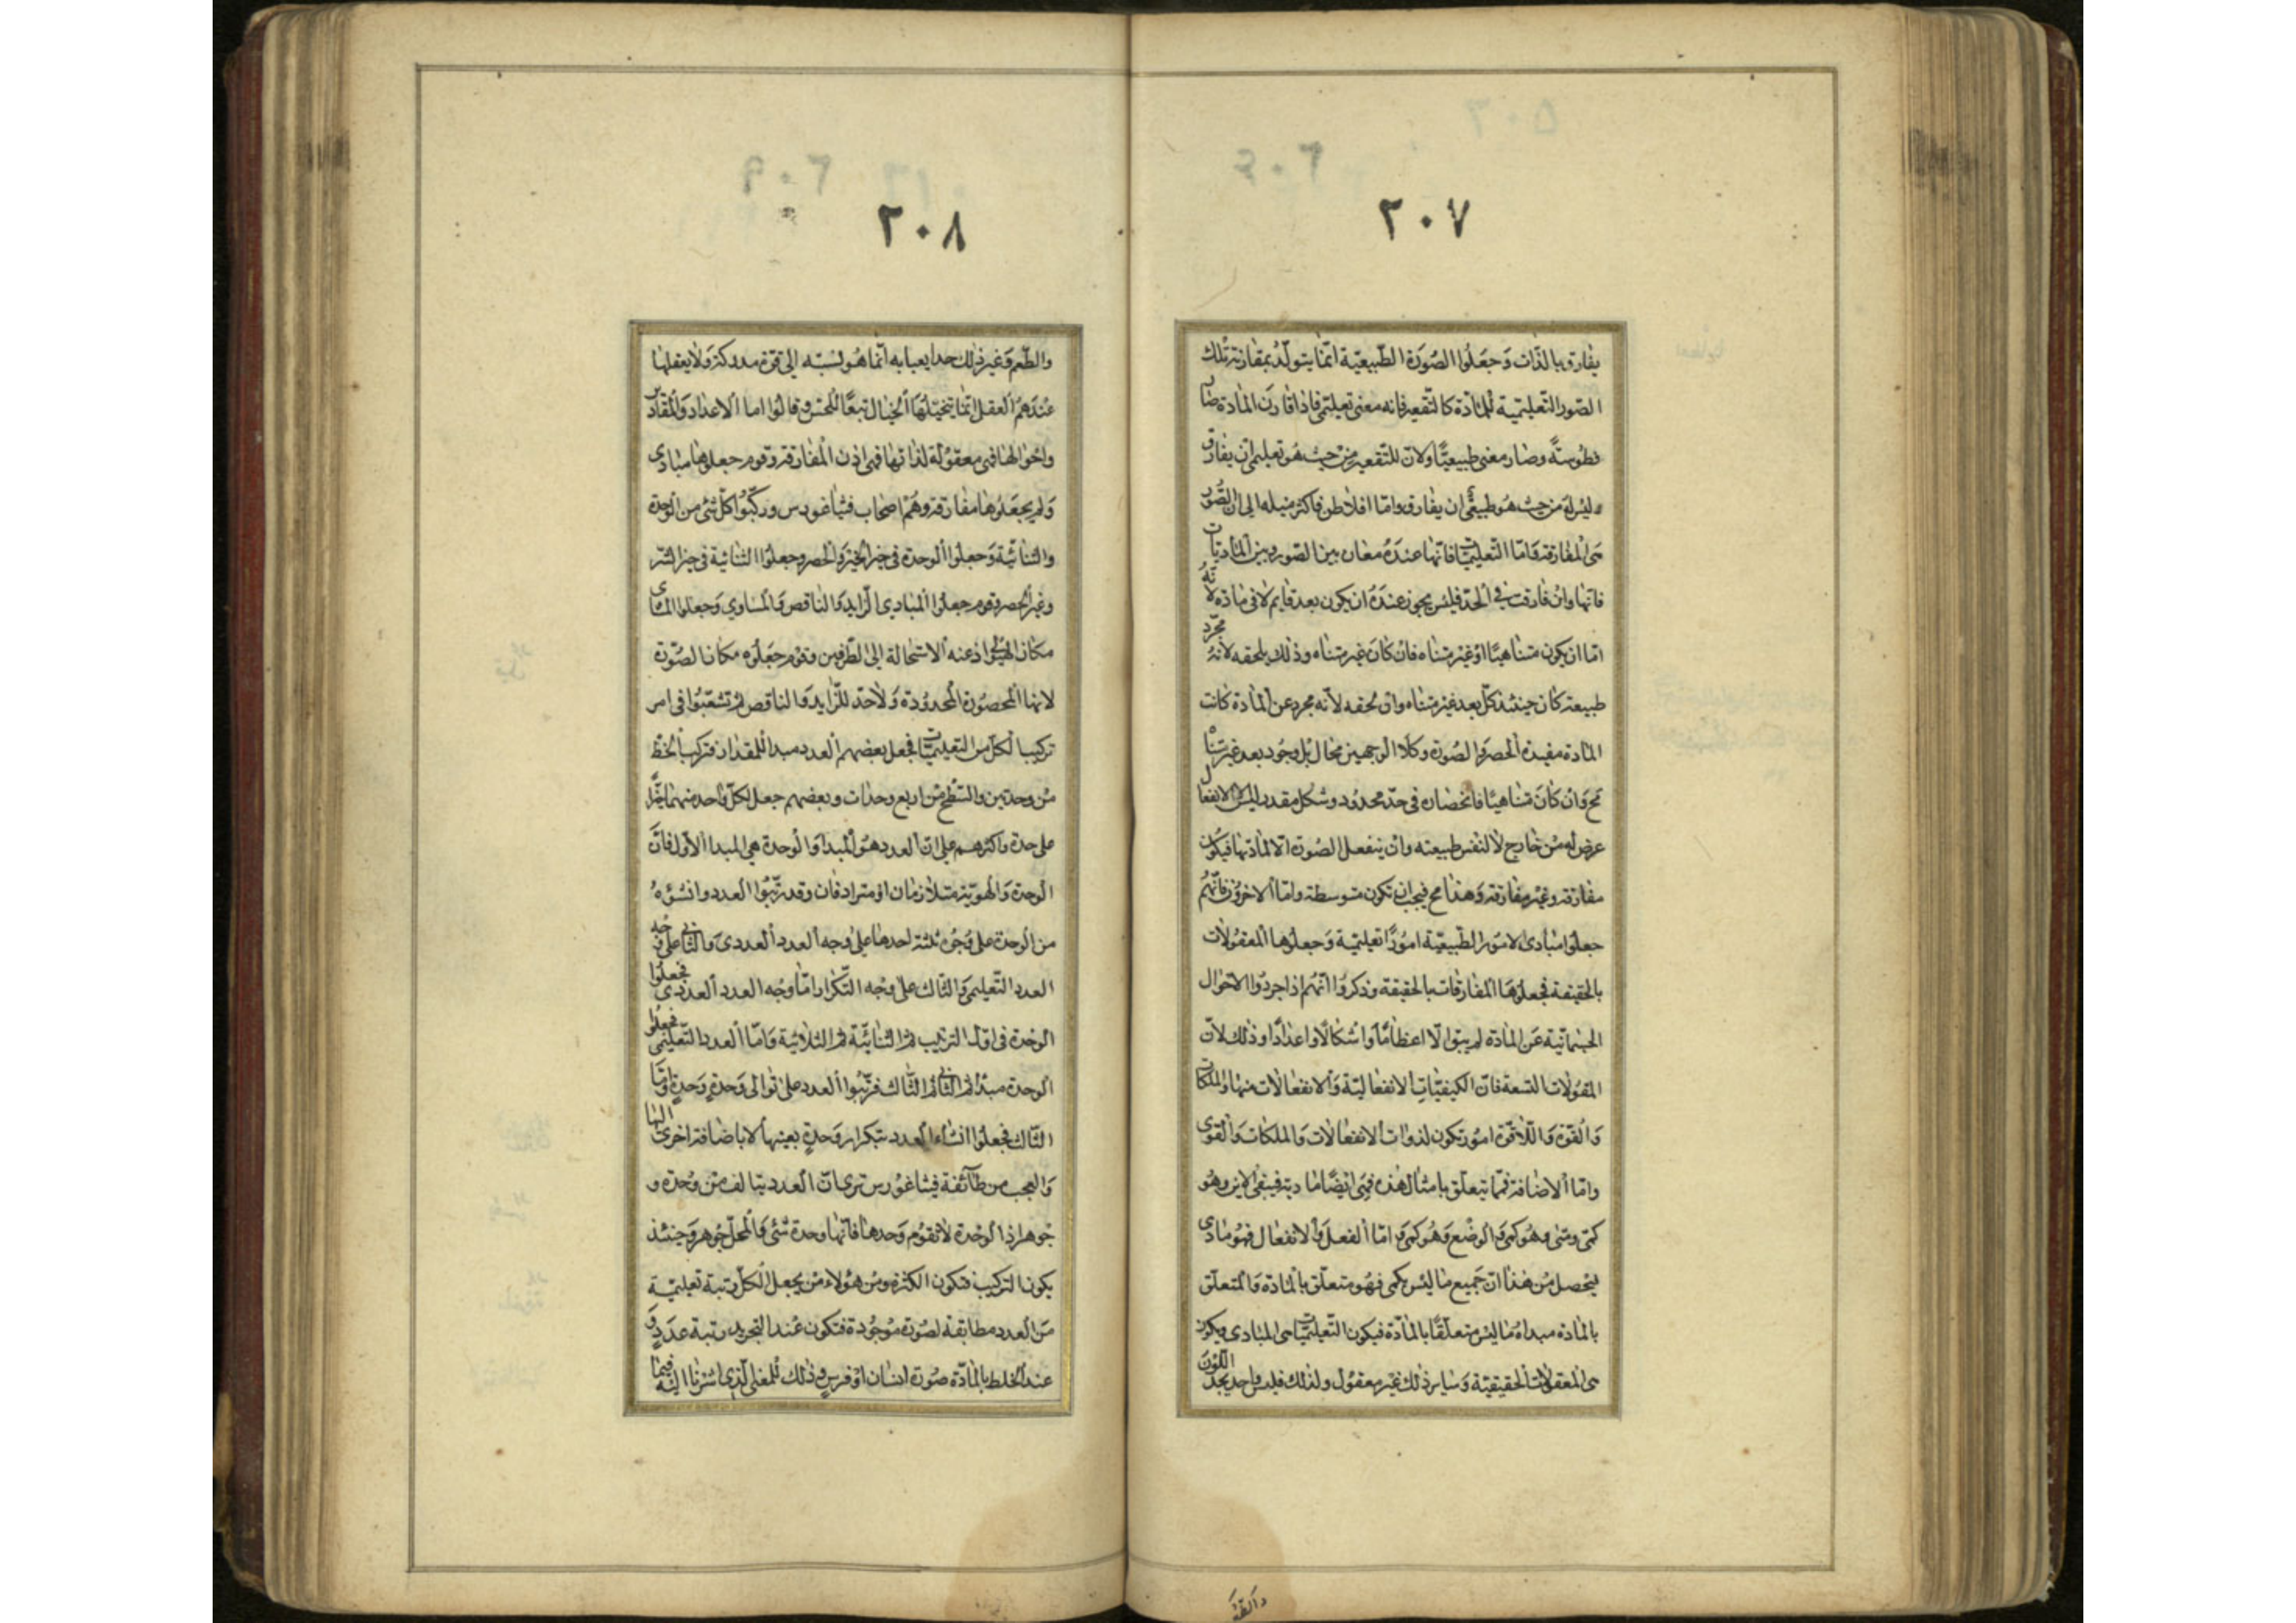 ٢٠٧
يفارق بالذات وجعلوا الصورة الطبيعية انما يتولد بمقارنة تلك
الصور التعليمية للمادة كالتقعير فانه معنى تعليمي فاذا قارن المادة صار
فطوسة وصار معنى طبيعيا ولان للتقعير من حيث هو تعليمي ان يفارق
وليس له من حيث هو طبيعي ان يفارق واما افلاطن فاكثر ميله الى ان الصور
هي المفارقة فاما التعليميات فانها عنده معان بين الصور وبين الماديات
فانها وان فارقت في الحد فليس يجوز عنده ان يكون بعد قايم لا في مادة لانه
اما ان يكون متناهيا او غير متناه فان كان غير متناه وذلك يلحقه لانه مجرد
طبيعة كان حينئذ كل بعد غير متناه وان لحقه لانه مجرد عن المادة كانت
المادة مفيدة الحصر والصورة وكلا الوجهين محال بل وجود بعد غير متناه
مح وان كان متناهيا فانحصاره في حد محدود وشكل مقدر ليس الا لانفعال
عرض له من خارج لا لنفس طبيعته وان ينفعل الصورة الا لمادتها فيكون
مفارقة وغير مفارقة وهذا مح فيجب ان تكون متوسطة واما الاخرون فانهم
جعلوا مبادى الامور الطبيعية امورا تعليمية وجعلوها المعقولات
بالحقيقة فجعلوها المفارقات بالحقيقة وذكروا انهم اذا جردوا الاحوال
الجسمانية عن المادة لم يبق الا اعظاما واشكالا واعدادا وذلك لان
المقولات التسعة فان الكيفيات الانفعالية والانفعالات منها والملكات
والقوة واللاقوة امور تكون لذوات الانفعالات والملكات والقوى
واما الاضافة فما يتعلق بامثال هذه فهي ايضا مادية فيبقى الاين وهو
كمي ومتى وهو كمي والوضع وهو كمي واما الفعل والانفعال فهو مادى
فيحصل من هذا ان جميع ما ليس بكمي فهو متعلق بالمادة والمتعلق
بالمادة مبداه ما ليس متعلقا بالمادة فيكون التعليميات هي المبادى ويكون
هي المعقولات الحقيقية وساير ذلك غير معقول ولذلك فليس احد يحد اللون
٢٠٨
والطعم وغير ذلك حدا يعبا به انما هو نسبته الى قوة مدركة ولا يعقلها
عندهم العقل انما يتخيلها الخيال تبعا للحس وقالوا اما الاعداد والمقادير
واحوالها فهي معقولة لذاتها فهي اذن المفارقة وقوم جعلوها مبادى
ولم يجعلوها مفارقة وهم اصحاب فيثاغورس وركبوا كل شئ من الوحدة
والثنائية وجعلوا الوحدة في حيز الخير والحصر وجعلوا الثنائية في حيز الشر
وغير الحصر وقوم جعلوا المبادى الزايد والناقص والمساوي وجعلوا المساوى
مكان الهيولى اذ عنه الاستحالة الى الطرفين وقوم جعلوه مكان الصورة
لانها المحصورة المحدودة ولا حد للزايد والناقص ثم تشعبوا في امر
تركيب الكل من التعليميات فجعل بعضهم العدد مبدا للمقدار فتركب الخط
من وحدتين والسطح من اربع وحدات وبعضهم جعل لكل واحد منهما حيزا
على حدة واكثرهم على ان العدد هو المبدا والوحدة هي المبدا الاول فان
الوحدة والهوية متلازمان او مترادفان وقد رتبوا العدد وانشؤه
من الوحدة على وجوه ثلثة احدها على وجه العدد العددى والثاني على وجه
العدد التعليمي والثالث على وجه التكرار اما وجه العدد العددى فجعلوا
الوحدة في اول الترتيب ثم الثنائية ثم الثلاثية واما العدد التعليمى فجعلوا
الوحدة مبدا ثم الثاني ثم الثالث فرتبوا العدد على توالى وحدة وحدة واما
الثالث فجعلوا انشاء العدد بتكرار وحدة بعينها لا باضافة اخرى اليها
والعجب من طآئفة فيثاغورس ترى ان العدد يتالف من وحدة و
جوهر اذ الوحدة لا تقوم وحدها فانها وحدة شئ والمحل جوهر وحينئذ
يكون التركيب فتكون الكثرة ومن هؤلاء من يجعل لكل رتبة تعليمية
من العدد مطابقة لصورة موجودة فتكون عند التجريد رتبة عدد و
عند الخلط بالمادة صورة انسان او فرس وذلك للمعنى الذي اشرنا اليه فيما